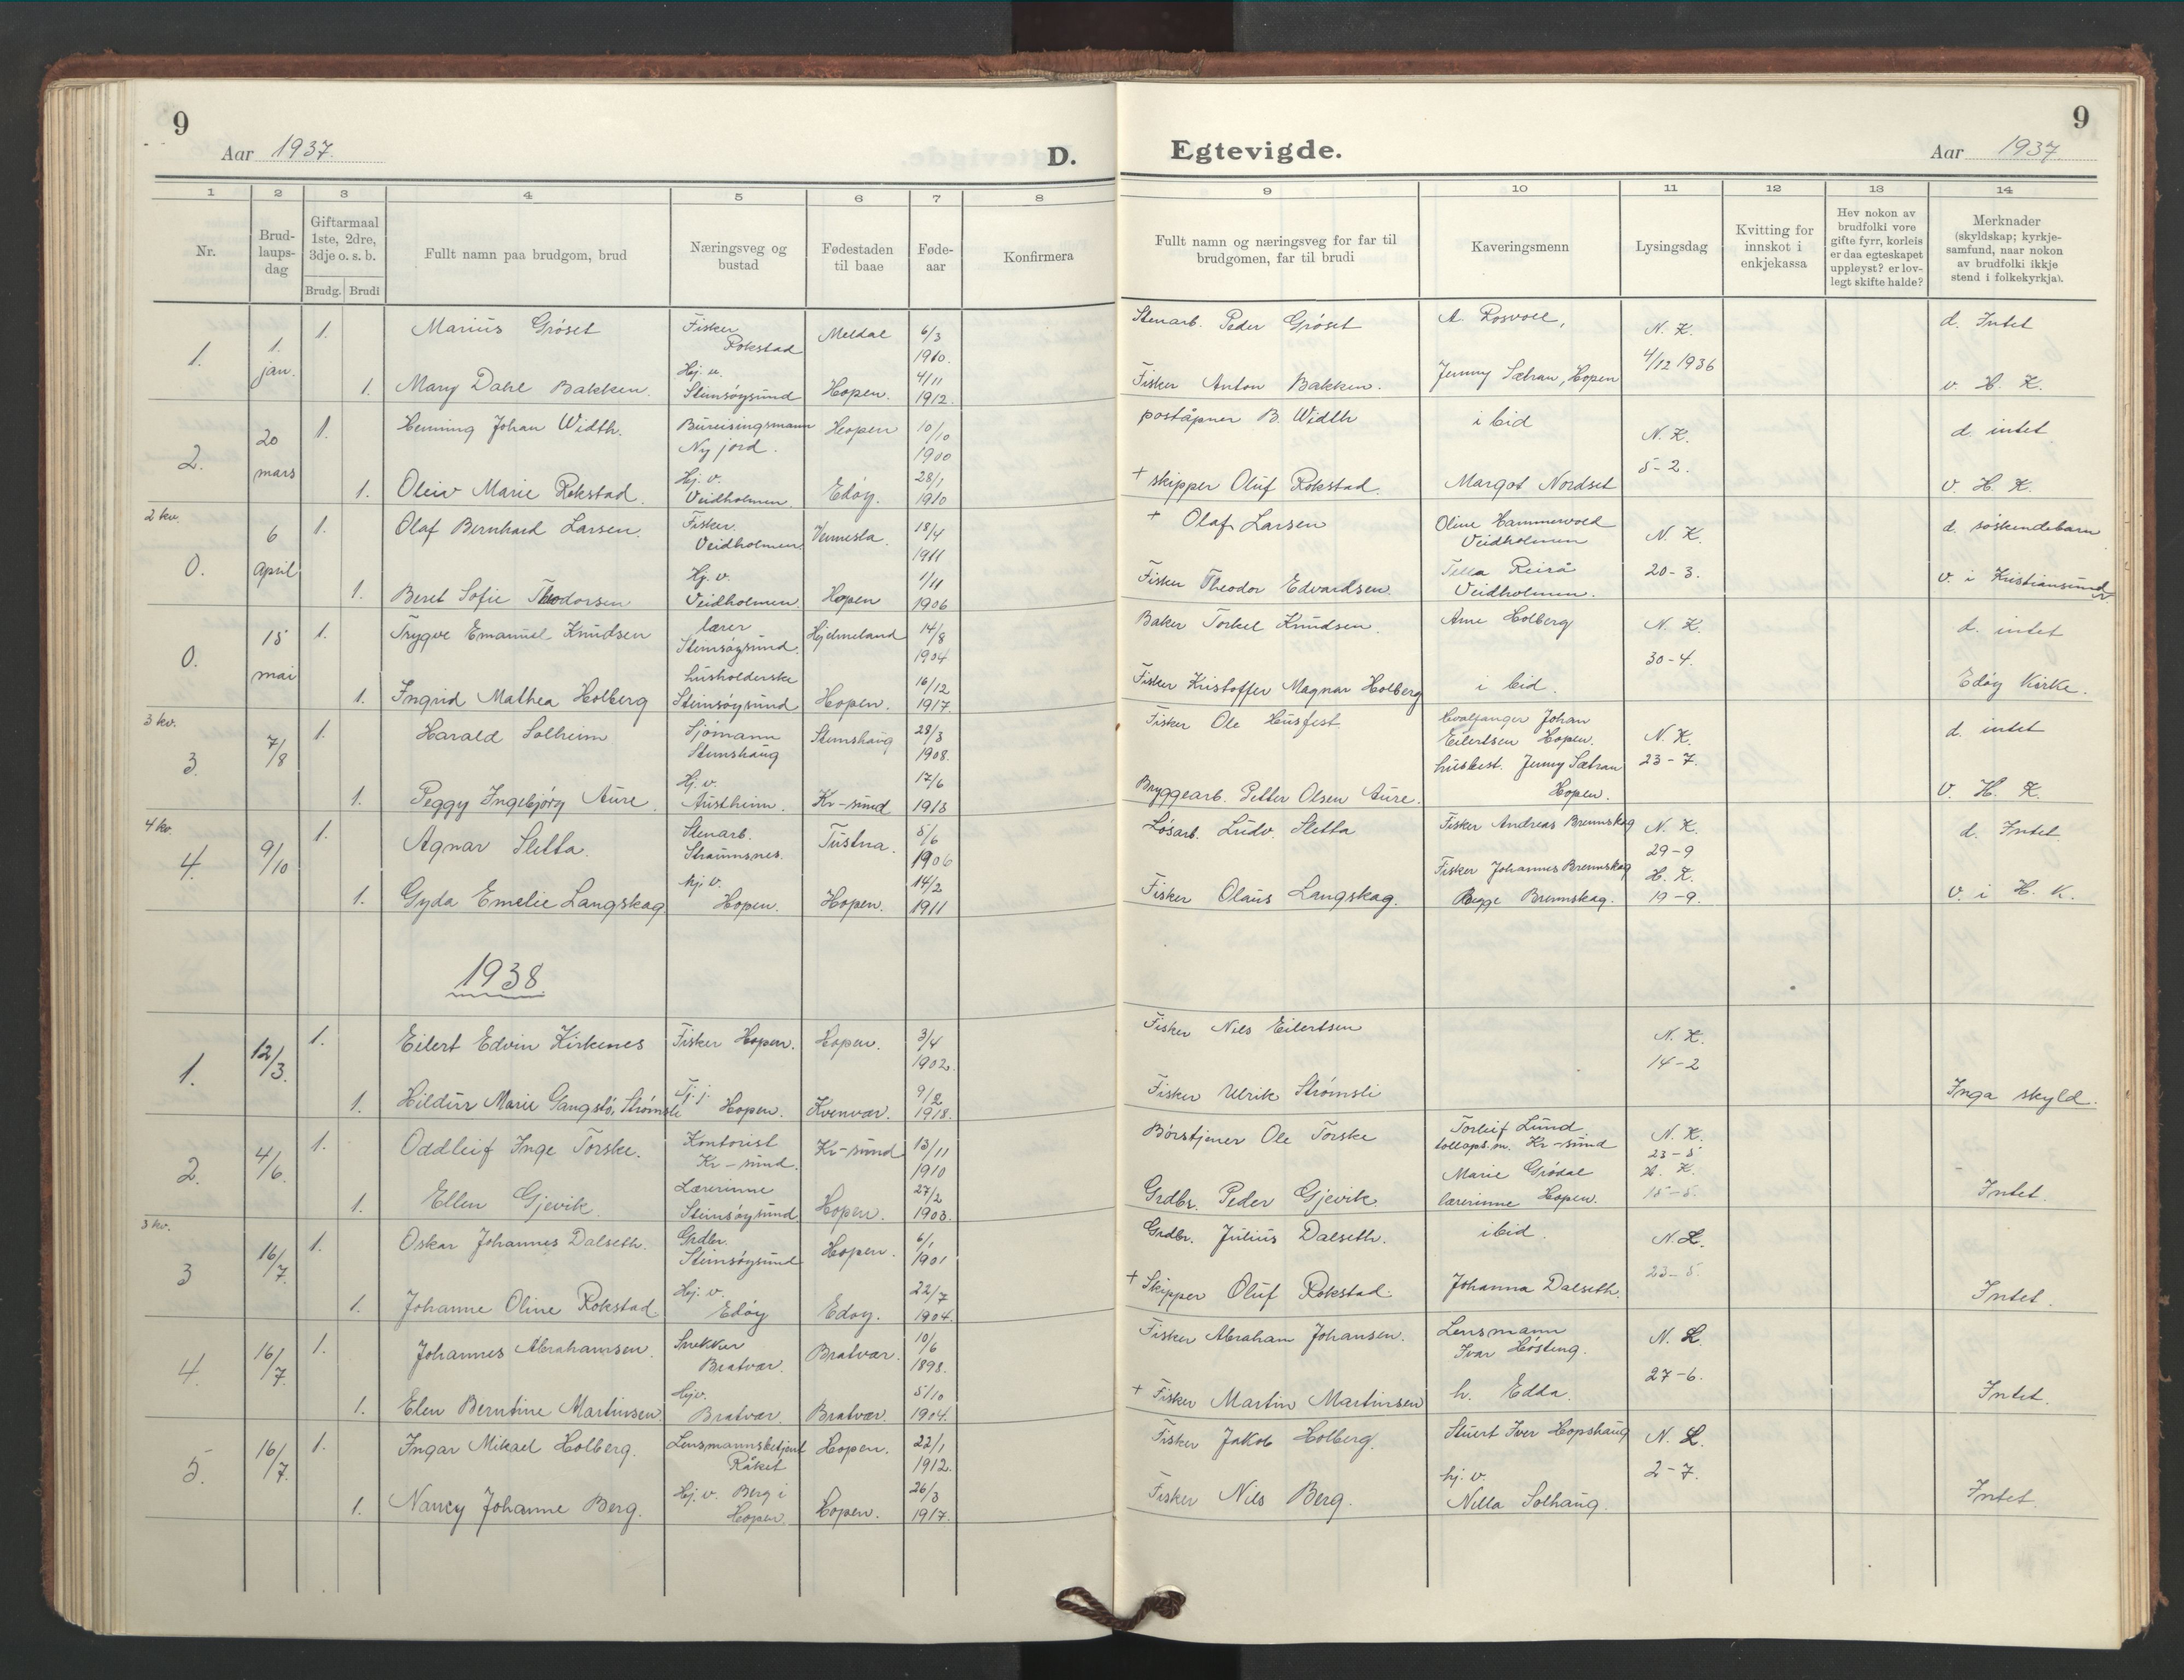 9
Aar 1937.
D.
Egtevigde.
Aar 1937.
9
1 2 3 4 5 6 7 8 9 10 11 12 13 14
Nr.
Brud-
laups-
dag
Giftarmaal
1ste, 2dre,
3dje o. s. b.
Brudg. Brudi
Fullt namn paa brudgom, brud
Næringsveg og
bustad
Fødestaden
til baae
Føde-
aar
Konfirmera
Fullt namn og næringsveg for far til
brudgomen, far til brudi
Kaveringsmenn
Lysingsdag
Kvitting for
innskot i
enkjekassa
Hev nokon av
brudfolki vore
gifte fyrr, korleis
er daa egteskapet
uppløyst? er lov-
legt skifte halde?
Merknader
(skyldskap; kyrkje-
samfund, naar nokon
av brudfolki ikkje
stend i folkekyrkja).
1. 1. jan. 1. Marius Grøset Fisker Rokstad Meldal 6/3 1910. Stenarb. Peder Grøset A. Rosvoll, N. K. d. Intet
1. Mary Dahl Bakken. Hj. v. Steinsøysund Hopen. 4/11 1912. Fisker Anton Bakken. Jenny Sætran, Hopen 4/12 1936 v. H. K.
2. 20 mars 1. Henning Johan Width. Bureisingsmann Ny jord. Hopen 10/10 1900 poståpner B. Width ibid N. K. d. intet
1. Oleiv Marie Rokstad. Hj. v. Veidholmen. Edøy. 28/1 1910 + skipper Oluf Rokstad. Margot Nordset 5-2. V. H. K.
2 kv.
0. 6 april 1. Olaf Bernhard Larsen. Fisker. Veidholmen. Vennesla. 18/4 1911 + Olaf Larsen Oline Hammervold Veidholmen N. K. d. søskendebarn
1. Beret Sofie Theodorsen Hj. v. Veidholmen. Hopen 1/11 1906 Fisker Theodor Edvardsen. Tella Reirå Veidholmen. 20-3. V. i Kristiansund
0. 15 mai 1. Trygve Emanuel Knudsen lærer Steinsøysund. Hjelmeland 14/8 1904 Baker Torkel Knudsen. Arne Holberg N. K. d. intet
1. Ingrid Mathea Holberg husholderske Steinsøysund Hopen. 16/12 1917. Fisker Kristoffer Magnar Holberg ibid. 30-4. Edøy Kirke.
3 kv.
3. 7/8 1. Harald Solheim Sjømann Stemshaug Stemshaug 28/3 1908. Fisker Ole Husfest Hvalfanger Johan Eilertsen Hopen. N. K. d. intet
1. Peggy Ingebjørg Aure. Hj. v. Austheim. Kr-sund 17/6 1913 Bryggearb. Petter Olsen Aure. husbest. Jenny Sætran Hopen. 23-7. V. H. K.
4 kv.
4. 9/10 1. Agnar Sletta. Stenarb. Straumsnes. Tustna. 5/6 1906 Løsarb. Ludv. Sletta Fisker Andreas Brennskag N. K. 29-9 d. Intet
1. Gyda Emelie Langskag hj. v. Hopen. Hopen. 14/2 1911 Fisker Olaus Langskag. Fisker Johannes Brennskag Begge Brennskag. H. K. 19-9. V. i H. K.
1938
1. 12/3. 1. Eilert Edvin Kirkenes Fisker Hopen. Hopen. 3/4 1902. Fisker Nils Eilertsen N. K. 14-2
1. Hildur Marie Gangstø Strømsli Tj. j. Hopen. Kvenvær. 9/2 1918. Fisker Ulrik Strømsli Inga skyld.
2. 4/6. 1. Oddleif Inge Torske. Kontorist Kr-sund. Kr-sund 13/11 1910 Børstjener Ole Torske Torleif Lund tollops.m. Kr-sund N. K. 23-5
1. Ellen Gjevik. Lærerinne Steinsøysund Hopen. 27/2 1903. Grdbr. Peder Gjevik. Marie Grødal lærerinne Hopen. H. K. 15-5. Intet.
3 kv.
3 16/7. 1. Oskar Johannes Dalseth. Grdbr. Steinsøysund Hopen. 6/1 1901 Grdbr. Julius Dalseth. ibid. N. K.
1. Johanne Oline Rokstad. Hj. v. Edøy Edøy. 22/7 1904. + Skipper Oluf Rokstad. Johanna Dalseth. 23-5. Intet.
4. 16/7. 1. Johannes Abrahamsen. Snekker Bratvær. Bratvær. 10/6 1898. Fisker Abraham Johansen. Lensmann Ivar Høsteng. N. K.
1. Elen Berntine Martinsen. Hjv. Bratvær. Bratvær. 5/10 1904. + Fisker Martin Martinsen h. Edda. 27-6. Intet.
5. 16/7. 1. Ingar Mikael Holberg. Lensmannsbetjent Råket Hopen. 22/1 1912. Fisker Jakob Holberg. Stuert Iver Hopshaug N. K.
1. Nancy Johanne Berg. Hj. v. Berg i Hopen. Hopen. 26/3 1917. Fisker Nils Berg. hj. v. Nella Solhaug. 2-7. Intet.